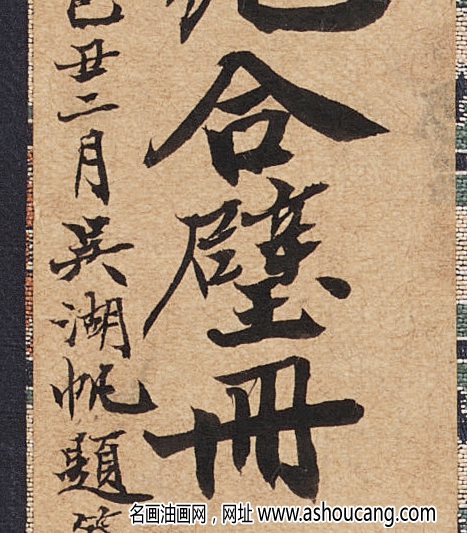 合璧冊
己丑二月吳湖帆題
名画油画网，网址 www.ashoucang.com